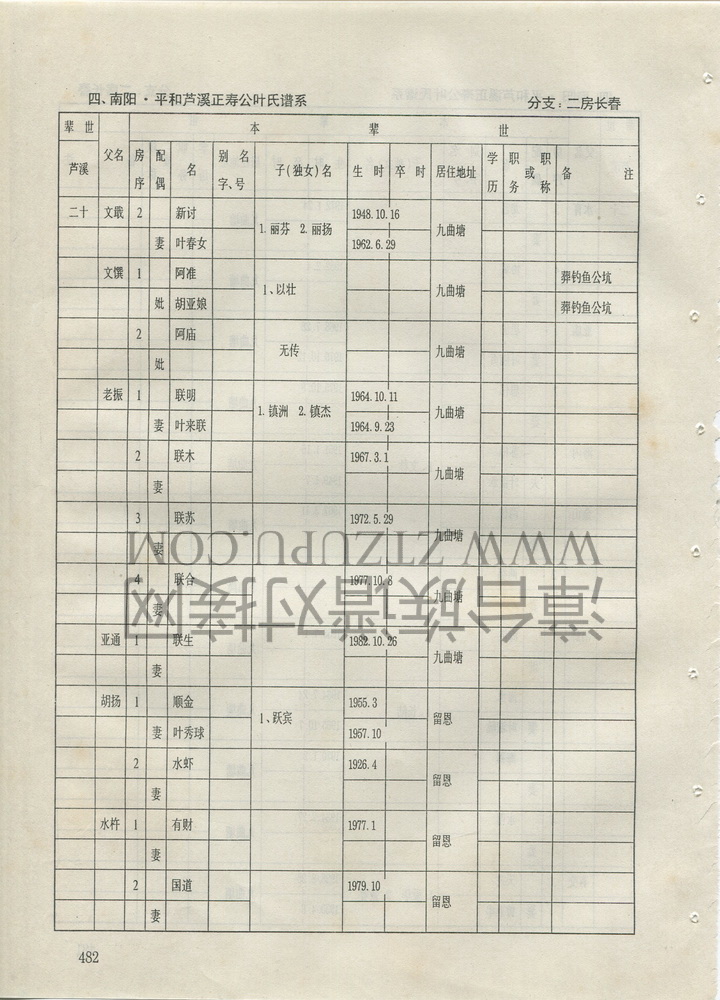 四、南阳·平和芦溪正寿公叶氏谱系 分支：二房长春
辈世 本辈世
芦溪 父名 房序 配偶 名 别名字、号 子(独女)名 生时 卒时 居住地址 学历 职或职务称 备注
二十 文戢 2 新讨 1.丽芬 2.丽扬 1948.10.16 九曲塘
妻 叶春女 1962.6.29
文馔 1 阿准 1、以壮 九曲塘 葬钓鱼公坑
妣 胡亚娘 葬钓鱼公坑
2 阿庙 无传 九曲塘
妣
老振 1 联明 1.镇洲 2.镇杰 1964.10.11 九曲塘
妻 叶来联 1964.9.23
2 联木 1967.3.1 九曲塘
妻
3 联苏 1972.5.29 九曲塘
妻
4 联合 1977.10.8 九曲塘
妻
亚通 1 联生 1982.10.26 九曲塘
妻
胡扬 1 顺金 1、跃宾 1955.3 留恩
妻 叶秀球 1957.10
2 水虾 1926.4 留恩
妻
水杵 1 有财 1977.1 留恩
妻
2 国道 1979.10 留恩
妻
482
WWW.ZTZUPU.COM
漳台族谱对接网